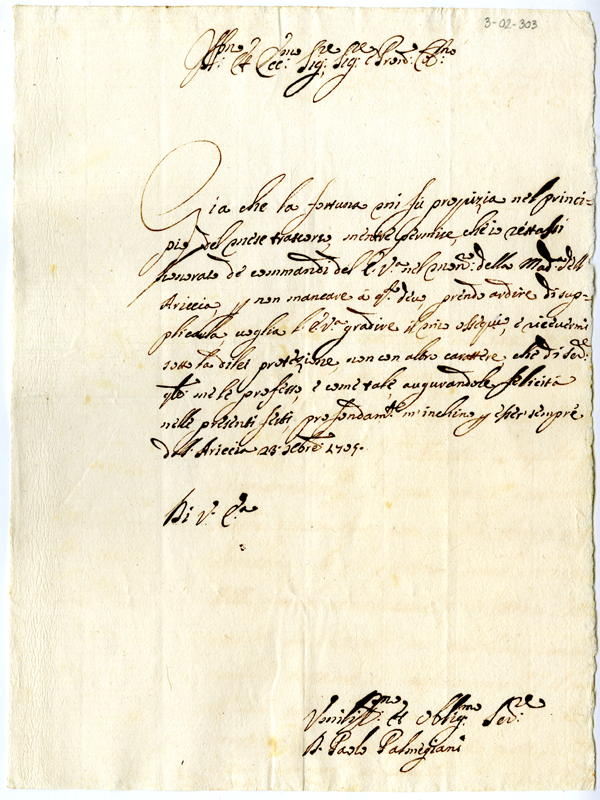 3-02-303
Ill:mo et Ecc:mo Sig:re Sig:re Pron: Col:mo
Gia che la fortuna mi fù propizia nel princi-
pio del mese trascorso, mentre permise, che io restassi
honorato de commandi del E. V. nel mon:ro della Mad:a dell'
Ariccia, p non mancare à q:to devo, prendo ardire di sup-
plicarla voglia l'E. V.a gradire il mio ossequio, e ricevermi
sotto la di lei protezione, non con altro carattere che di Ser:re
me le professo, e come tale, augurandole felicità
nelle presenti feste, profondam:te m'inchino p esser sempre
Dell'Ariccia 23: Xbre: 1705.
Di V. E.a
Umiliss:mo et Oblig:mo Ser:re
D. Paolo Palmegiani